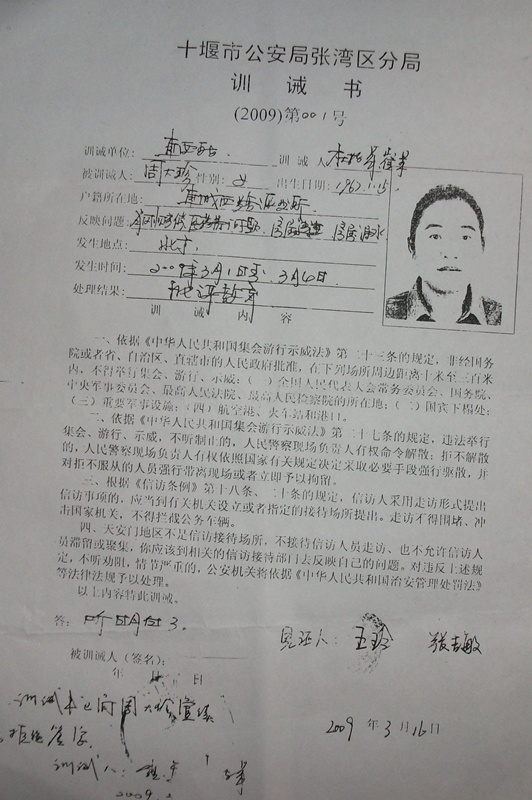 十堰市公安局张湾区分局
训 诫 书
(2009)第001号
训诫单位: 训 诫 人
被训诫人: 周大珍 性别: 女 出生日期: 1962.1.5
户籍所在地:
反映问题:
发生地点: 北京.
发生时间: 2009年3月1日至3月6日
处理结果: 批评教育
训 诫 内 容
一、依据《中华人民共和国集会游行示威法》第二十三条的规定,非经国务
院或者省、自治区、直辖市的人民政府批准,在下列场所周边距离十米至三百米
内,不得举行集会、游行、示威:(一)全国人民代表大会常务委员会、国务院、
中央军事委员会、最高人民法院、最高人民检察院的所在地;(二)国宾下榻处;
(三)重要军事设施;(四)航空港、火车站和港口。
二、依据《中华人民共和国集会游行示威法》第二十七条的规定,违法举行
集会、游行、示威,不听制止的,人民警察现场负责人有权命令解散;拒不解散
的,人民警察现场负责人有权依照国家有关规定决定采取必要手段强行驱散,并
对拒不服从的人员强行带离现场或者立即予以拘留。
三、根据《信访条例》第十八条、二十条的规定,信访人采用走访形式提出
信访事项的,应当到有关机关设立或者指定的接待场所提出。走访不得围堵、冲
击国家机关,不得拦截公务车辆。
四、天安门地区不是信访接待场所,不接待信访人员走访、也不允许信访人
员滞留或聚集,你应该到相关的信访接待部门去反映自己的问题。对违反上述规
定,不听劝阻,情节严重的,公安机关将依据《中华人民共和国治安管理处罚法》
等法律法规予以处理。
以上内容特此训诫。
答: 听明白了.
见证人: 王玲 张吉敏
被训诫人(签名):
年 月 日
训诫书已向周大珍宣读
拒绝签字
2009 年 3 月 16 日
训诫人:
2009.